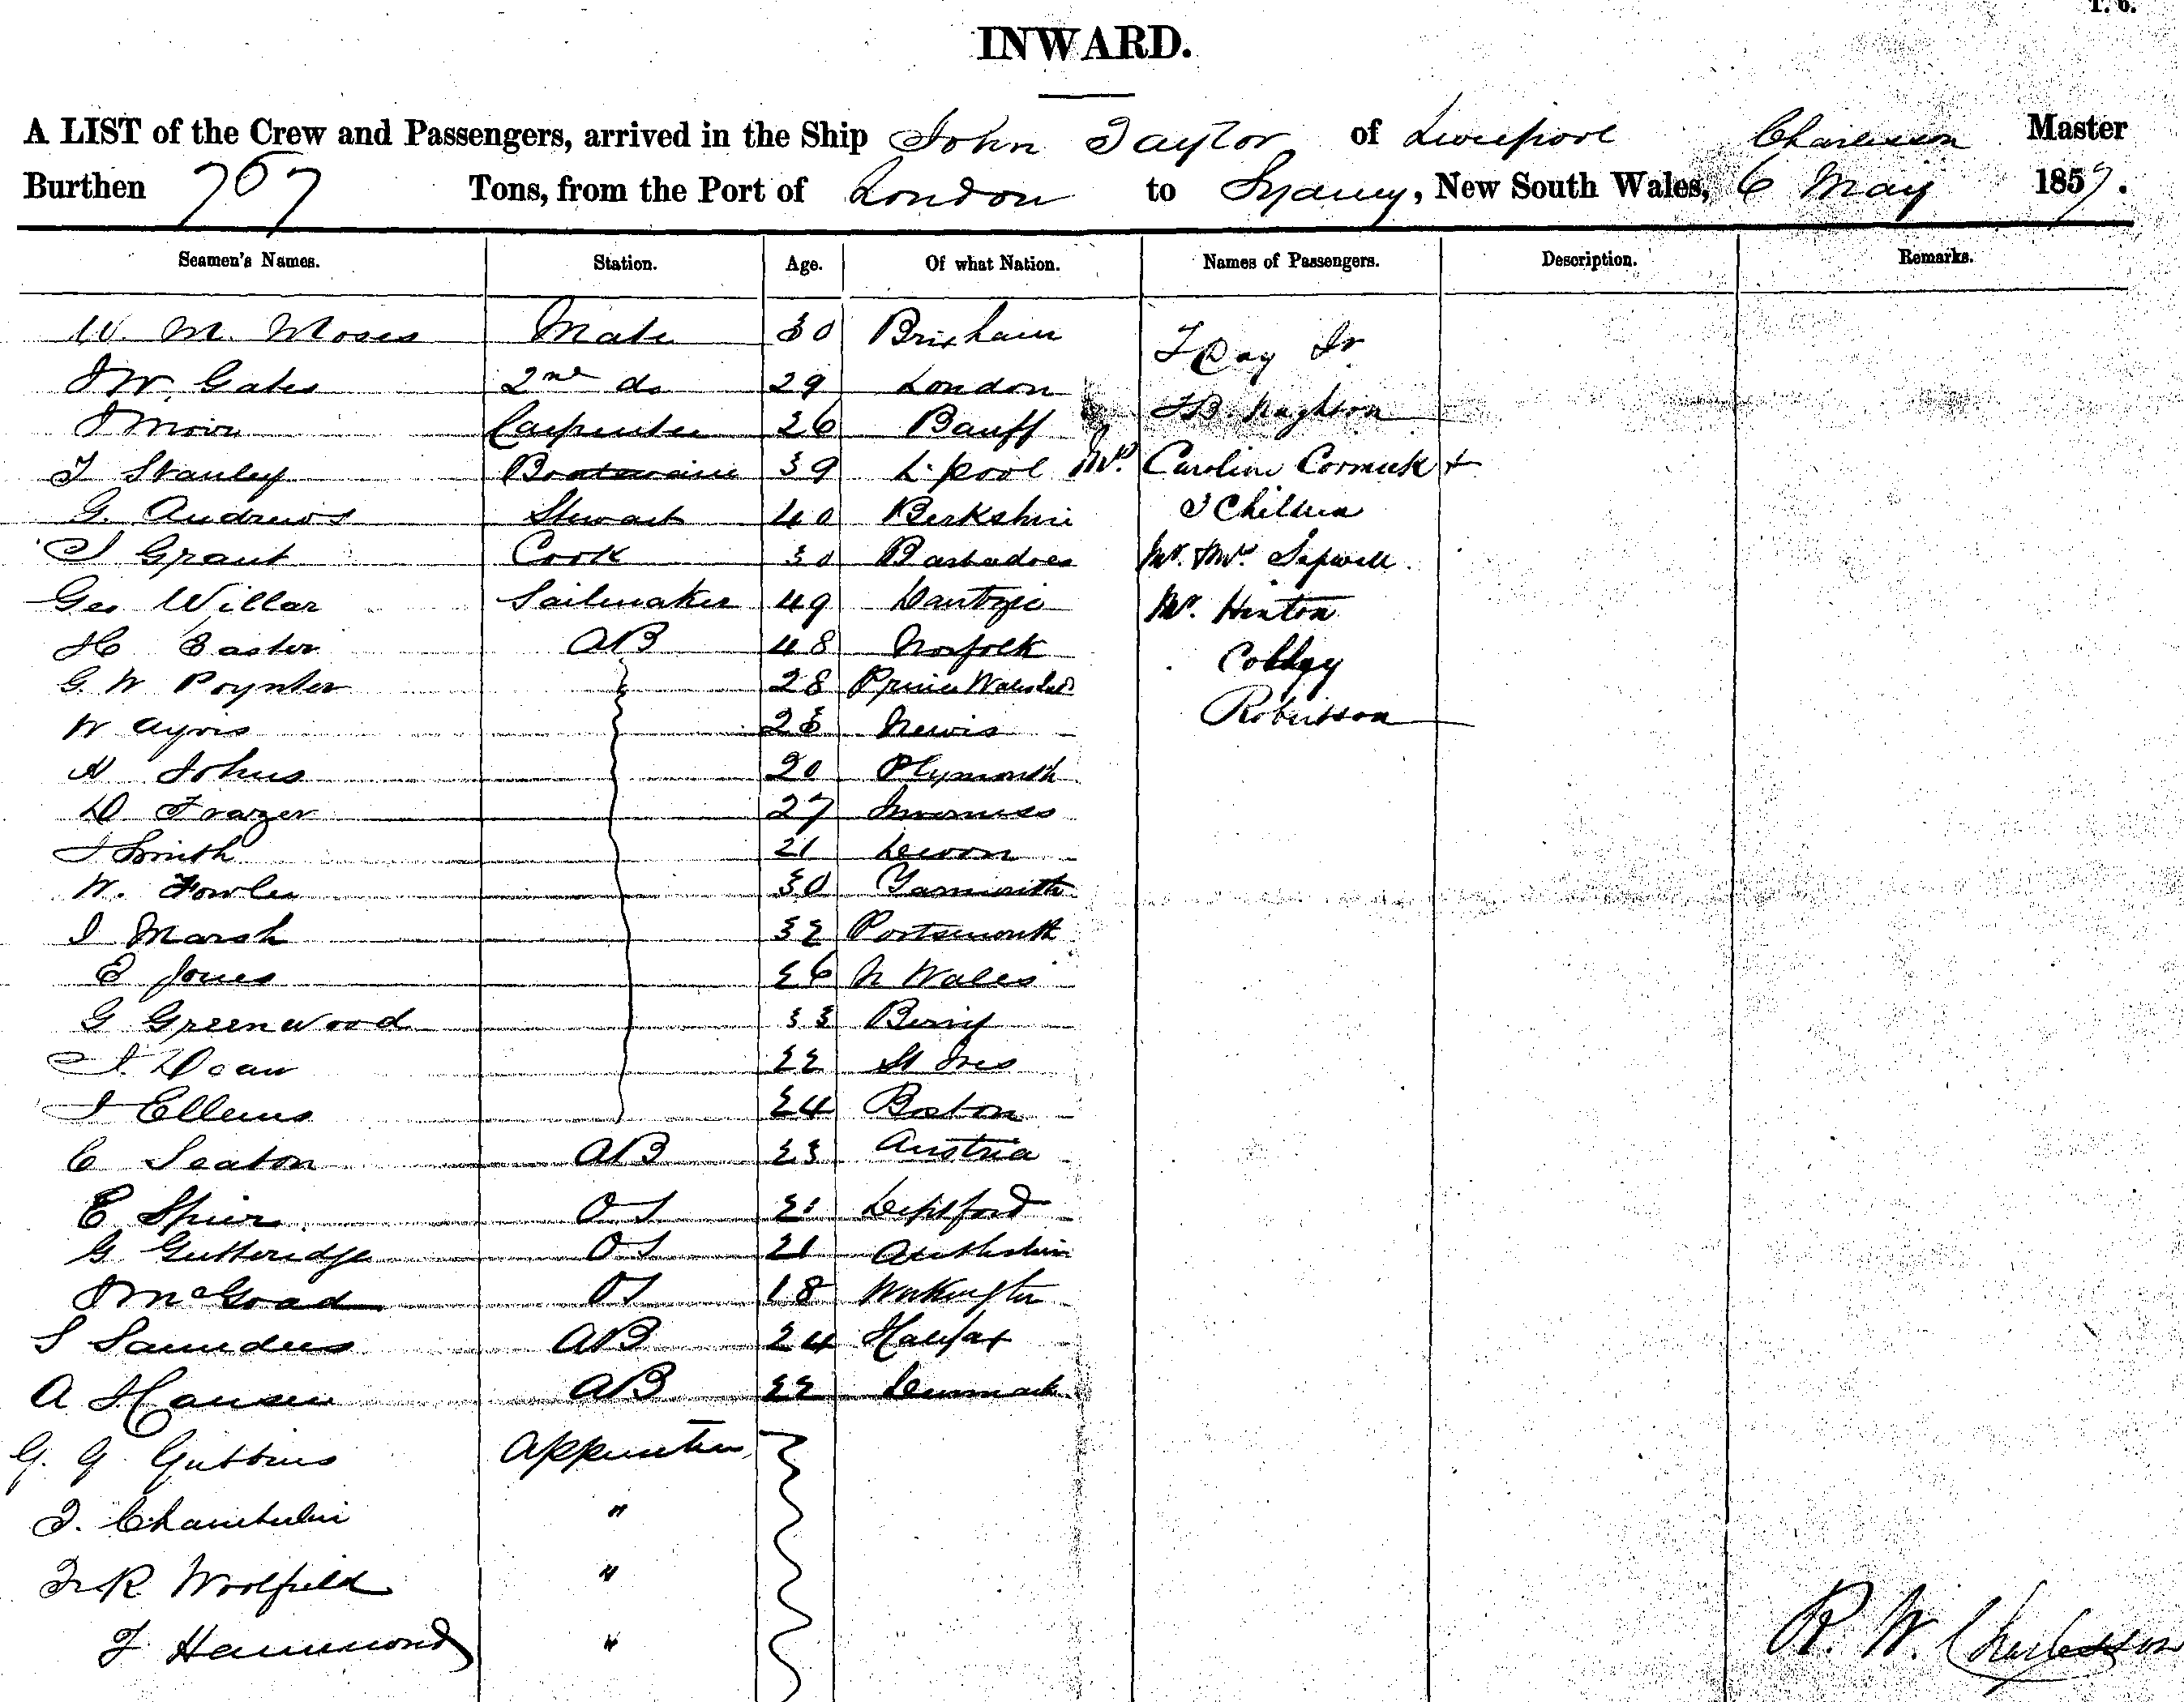 T. 6.
INWARD.
A LIST of the Crew and Passengers, arrived in the Ship John Taylor of Liverpool Charlesson Master
Burthen 767 Tons, from the Port of London to Sydney, New South Wales, 6 May 1857.
Seamen's Names. Station. Age. Of what Nation. Names of Passengers. Description. Remarks.
W. M. Moses Mate 30 Brixham T Day Jr
J W. Gates 2nd do 29 London J B. Hughson
J Moir Carpenter 26 Banff
T Stanley Boatswain 39 L.pool Mrs Caroline Cormick +
G. Andrews Steward 40 Berkshire 3 Children
J Grant Cook 30 Barbadoes Mr. & Mrs. Sapwell.
Geo Willar Sailmaker 49 Dantzic Mr. Hinton
H Easter AB 48 Norfolk Cobley
G. W Poynter 28 Prince Wales Isd Robertson
W Ayris 23 Nevis
N Johns 20 Plymouth
D Frazer 27 Inverness
J Smith 21 Devon
W. Fowler 30 Yarmouth
J Marsh 32 Portsmouth
E Jones 26 N Wales
G Greenwood 33 Bury
J. Dean 22 St Ives
J Ellems 24 Boston
C Seaton AB 23 Austria
E Spier OS 21 Deptford
G Gutteridge OS 21
J McGoad OS 18 Workington
S Saunders AB 24 Halifax
A Hansen AB 22 Denmark
G. G. Gubbins Apprentice
J. Chamberlin "
Fr R Woolfield "
F. Hammond "
R. W. Charlesson